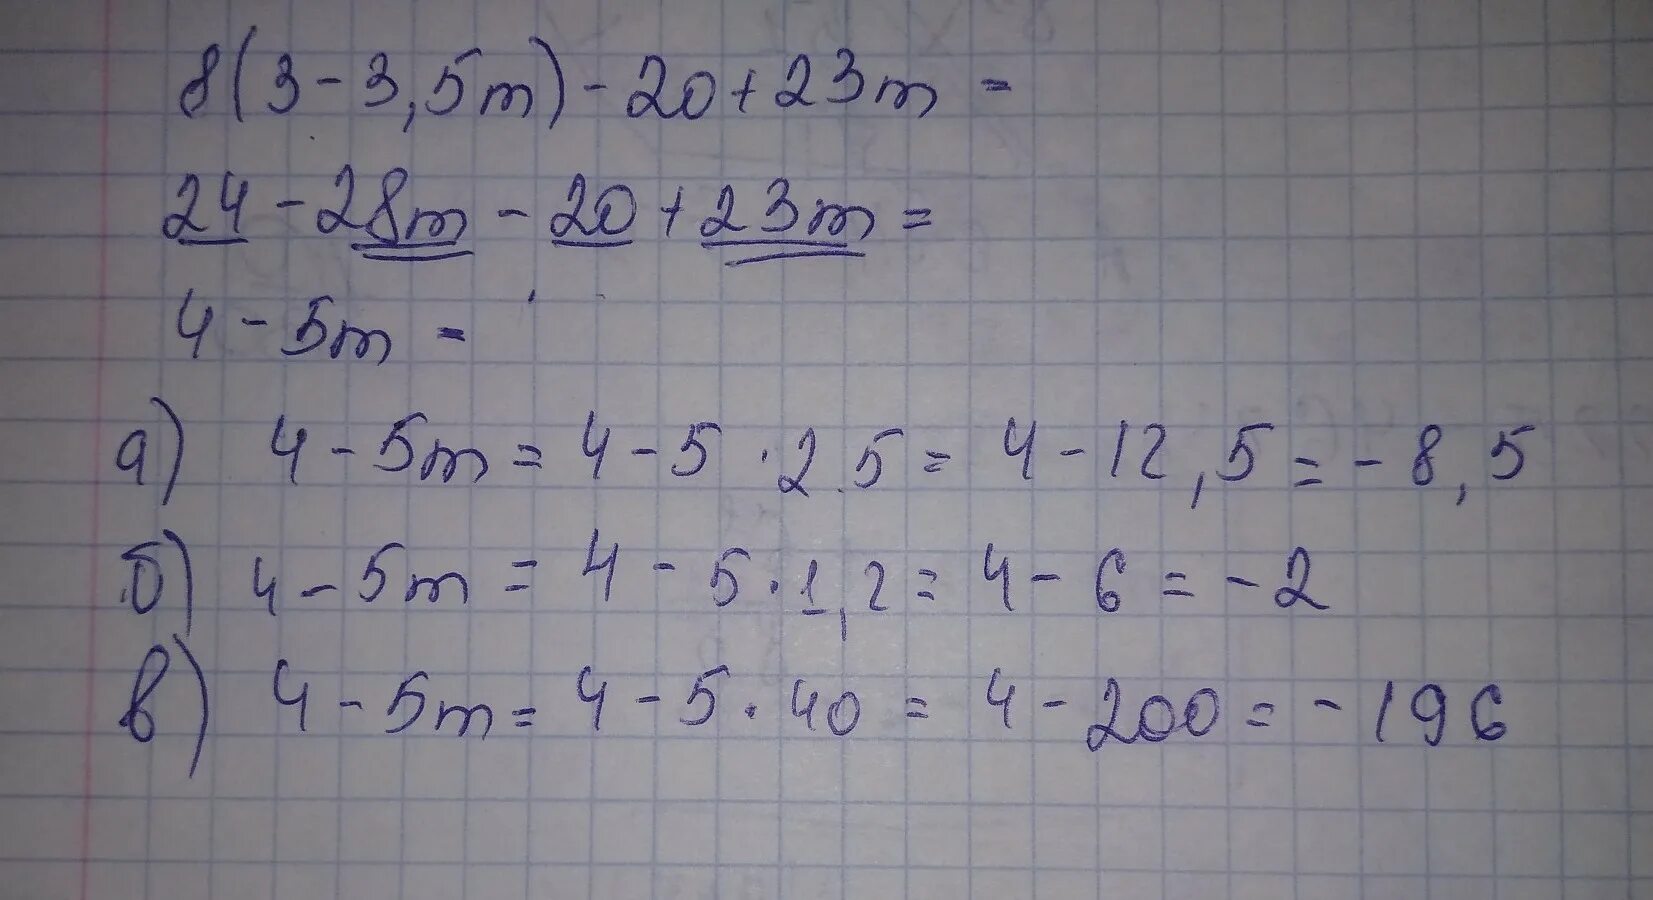 8(3-3,5m)-20+23m=
24-28m-20+23m=
4-5m=
а) 4-5m=4-5·2.5=4-12,5=-8,5
б) 4-5m=4-5·1,2=4-6=-2
в) 4-5m=4-5·40=4-200=-196